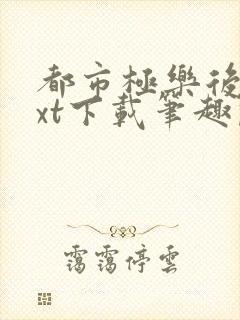 都市極樂後
xt下載筆趣
靄靄停雲